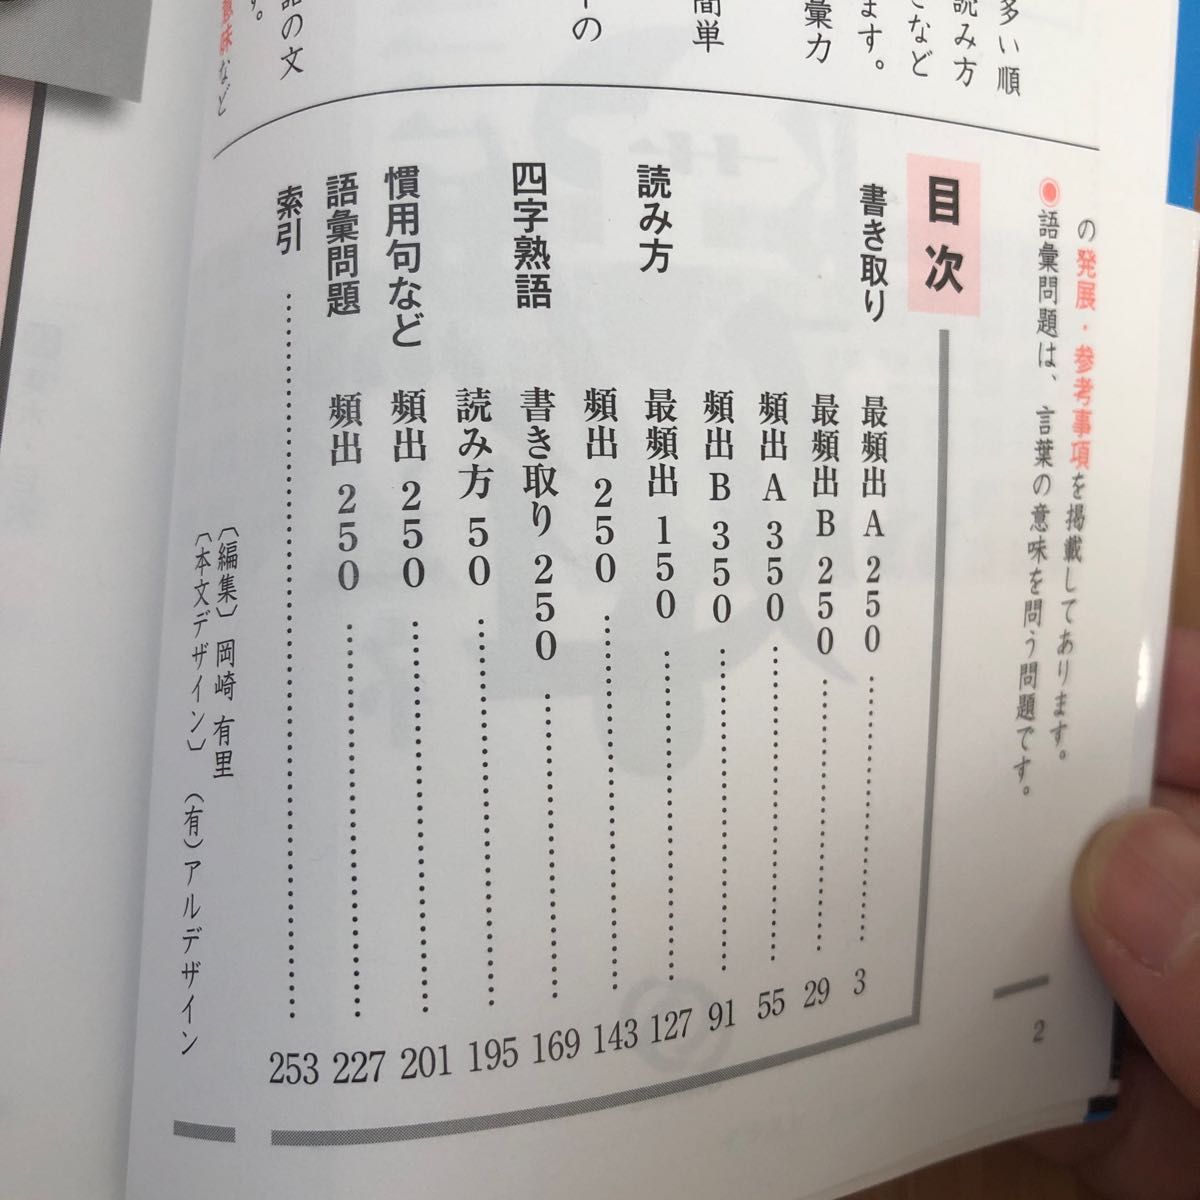 多い順
読み方
など
ます。
彙力
簡単
の
語の文
す。
意味など
の発展・参考事項を掲載してあります。
◉語彙問題は、言葉の意味を問う問題です。
2
目次
書き取り 最頻出A250 3
最頻出B250 29
頻出A350 55
頻出B350 91
読み方 最頻出150 127
頻出250 143
四字熟語 書き取り250 169
読み方50 195
慣用句など 頻出250 201
語彙問題 頻出250 227
索引 253
〔編集〕岡崎 有里
〔本文デザイン〕(有)アルデザイン